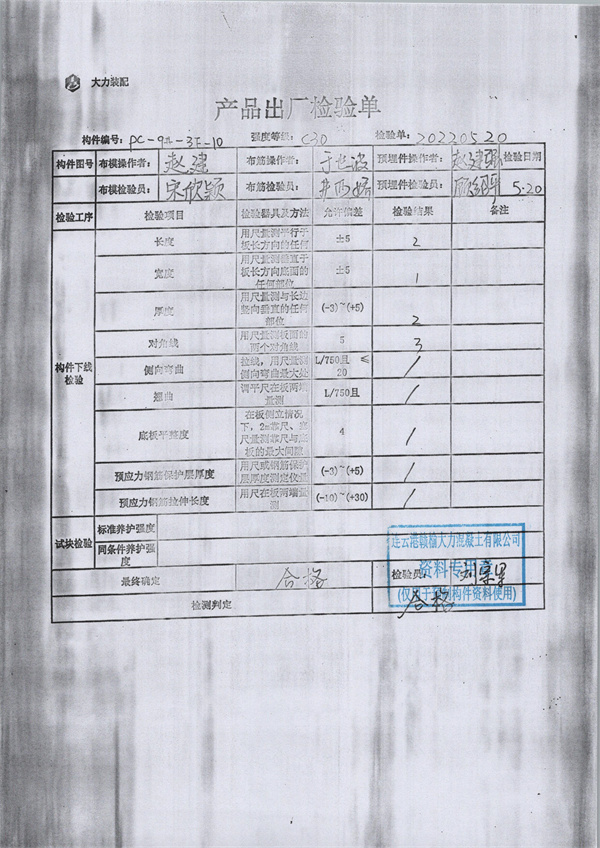 大力装配
产品出厂检验单
构件编号: PC-9#-3F-10 强度等级: C30 检验单: 20220520
构件图号 布模操作者: 赵建 布筋操作者: 预埋件操作者: 赵建 检验日期
布模检验员: 宋欣颖 布筋检验员: 预埋件检验员: 5.20
检验工序 检验项目 检验器具及方法 允许偏差 检验结果 备注
长度 用尺量测平行于板长方向的任何 ±5 2
宽度 用尺量测垂直于板长方向底面的任何部位 ±5 1
厚度 用尺量测与长边竖向垂直的任何部位 (-3)~(+5) 2
对角线 用尺量测板面的两个对角线 5 3
构件下线检验 侧向弯曲 拉线,用尺量测侧向弯曲最大处 L/750且 ≤20 /
翘曲 调平尺在板两端量测 L/750且 /
底板平整度 在板侧立情况下,2m靠尺、塞尺量测靠尺与底板的最大间隙 4 /
预应力钢筋保护层厚度 用尺或钢筋保护层厚度测定仪量 (-3)~(+5) /
预应力钢筋拉伸长度 用尺在板两端量测 (-10)~(+30) /
试块检验 标准养护强度
同条件养护强度
连云港赣榆大力混凝土有限公司
资料专用章
(仅用于预制构件资料使用)
最终确定 合格 检验员:
检测判定 合格